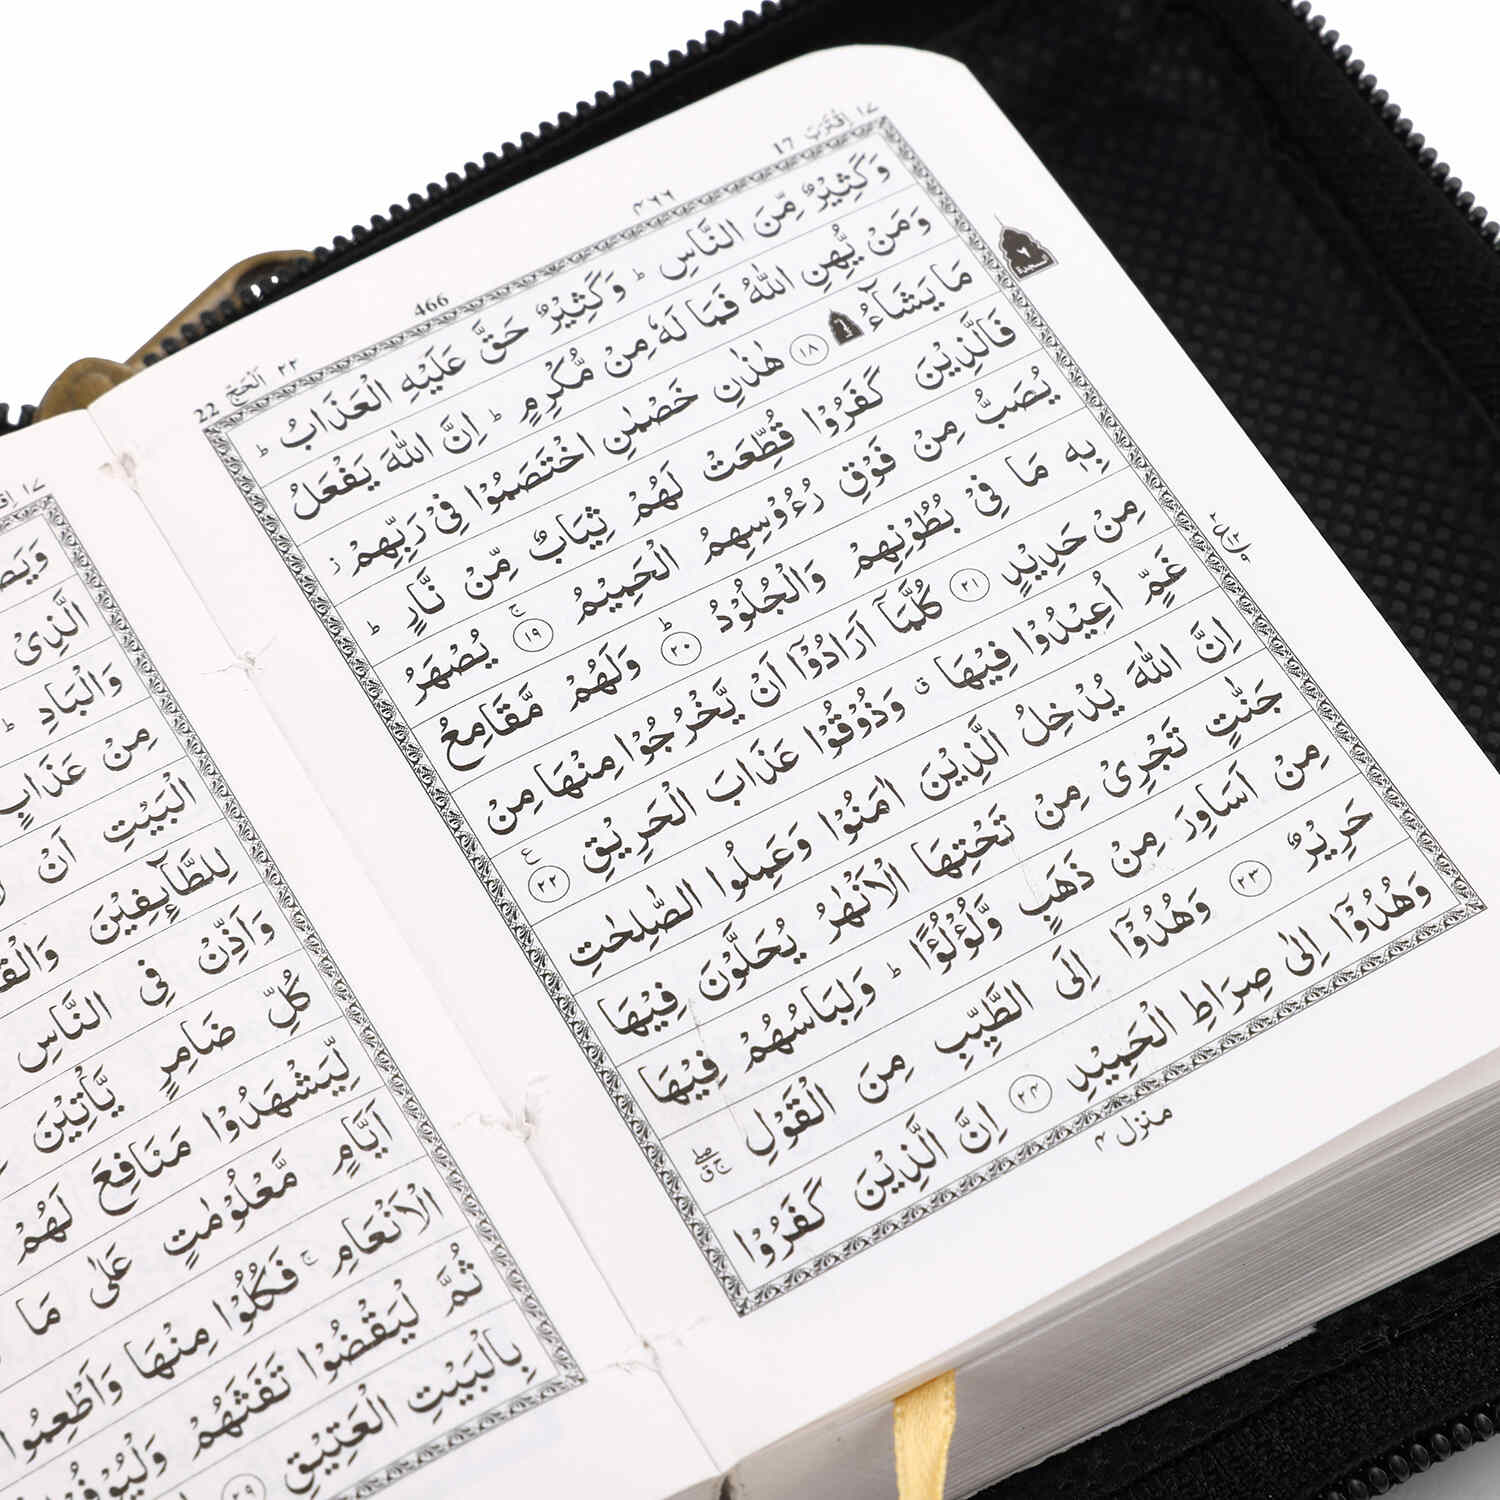 ١٧ اِقْتَرَبَ 17
٤٦٦
466
٢٢ اَلْحَجّ 22
وَكَثِيْرٌ مِّنَ النَّاسِ ؕ وَكَثِيْرٌ حَقَّ عَلَيْهِ الْعَذَابُ ؕ
وَمَنْ يُّهِنِ اللّٰهُ فَمَا لَهٗ مِنْ مُّكْرِمٍ ؕ اِنَّ اللّٰهَ يَفْعَلُ
مَا يَشَآءُ ۩ ﴿١٨﴾ هٰذٰنِ خَصْمٰنِ اخْتَصَمُوْا فِىْ رَبِّهِمْ ز
فَالَّذِيْنَ كَفَرُوْا قُطِّعَتْ لَهُمْ ثِيَابٌ مِّنْ نَّارٍ ؕ
يُصَبُّ مِنْ فَوْقِ رُءُوْسِهِمُ الْحَمِيْمُ ﴿١٩﴾ۚ يُصْهَرُ
بِهٖ مَا فِىْ بُطُوْنِهِمْ وَالْجُلُوْدُ ﴿٢٠﴾ؕ وَلَهُمْ مَّقَامِعُ
مِنْ حَدِيْدٍ ﴿٢١﴾ كُلَّمَاۤ اَرَادُوْۤا اَنْ يَّخْرُجُوْا مِنْهَا مِنْ
غَمٍّ اُعِيْدُوْا فِيْهَا ق وَذُوْقُوْا عَذَابَ الْحَرِيْقِ ﴿٢٢﴾ ع
اِنَّ اللّٰهَ يُدْخِلُ الَّذِيْنَ اٰمَنُوْا وَعَمِلُوا الصّٰلِحٰتِ
جَنّٰتٍ تَجْرِىْ مِنْ تَحْتِهَا الْاَنْهٰرُ يُحَلَّوْنَ فِيْهَا
مِنْ اَسَاوِرَ مِنْ ذَهَبٍ وَّلُؤْلُؤًا ؕ وَلِبَاسُهُمْ فِيْهَا
حَرِيْرٌ ﴿٢٣﴾ وَهُدُوْۤا اِلَى الطَّيِّبِ مِنَ الْقَوْلِ
وَهُدُوْۤا اِلٰى صِرَاطِ الْحَمِيْدِ ﴿٢٤﴾ اِنَّ الَّذِيْنَ كَفَرُوْا
منزل ٤
السجدة ٦
١٧
الَّذِىْ
وَالْبَادِ ؕ
مِنْ عَذَابٍ
الْبَيْتِ اَنْ
لِلطَّآئِفِيْنَ
وَاَذِّنْ فِى النَّاسِ
كُلِّ ضَامِرٍ يَّاْتِيْنَ
لِّيَشْهَدُوْا مَنَافِعَ لَهُمْ
اَيَّامٍ مَّعْلُوْمٰتٍ عَلٰى مَا
الْاَنْعَامِ ۚ فَكُلُوْا مِنْهَا وَاَطْعِمُوا
ثُمَّ لْيَقْضُوْا تَفَثَهُمْ
بِالْبَيْتِ الْعَتِيْقِ ﴿٢٩﴾